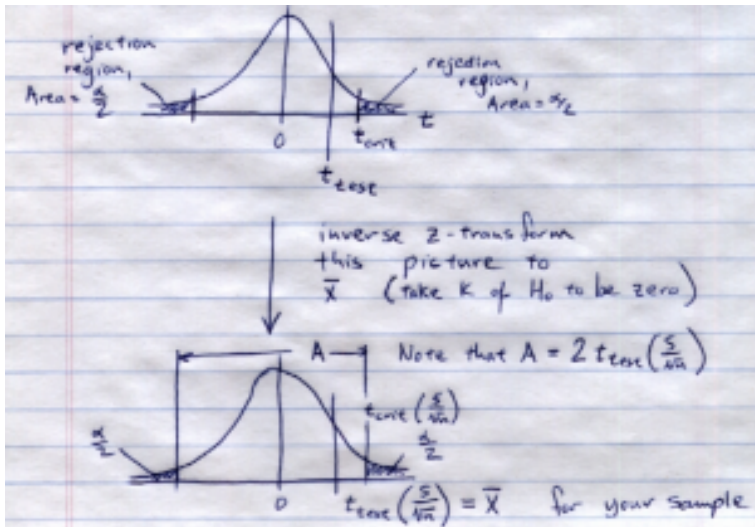 rejection
region,
Area = α/2
rejection
region,
Area = α/2
0
t crit
t
t test
inverse z-transform
this picture to
x̄ (take K of H₀ to be zero)
A
Note that A = 2 t test (s/√n)
t crit (s/√n)
α/2
α/2
0
t test (s/√n) = x̄ for your sample